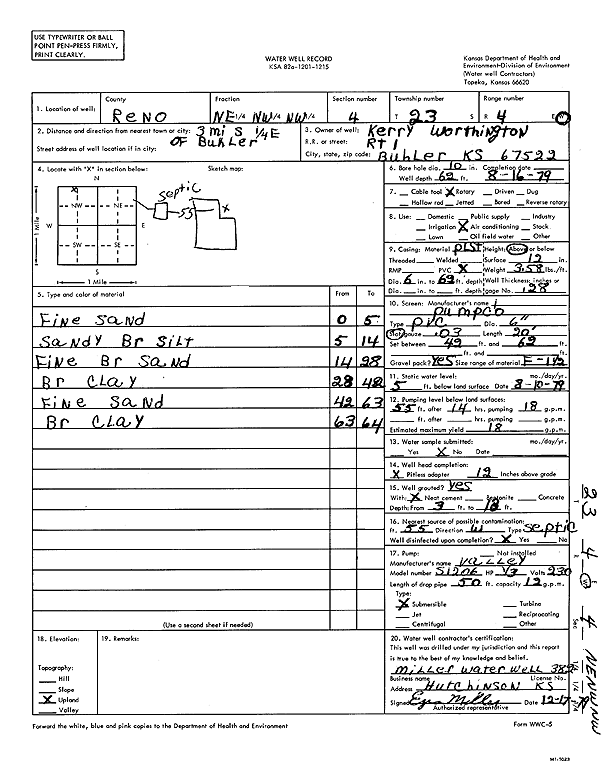 USE TYPEWRITER OR BALL
POINT PEN-PRESS FIRMLY,
PRINT CLEARLY.
WATER WELL RECORD
KSA 82a-1201-1215
Kansas Department of Health and
Environment-Division of Environment
(Water well Contractors)
Topeka, Kansas 66620
1. Location of well:
County
Reno
Fraction
NE 1/4 NW 1/4 NW 1/4
Section number
4
Township number
T 23 S
Range number
R 4 E W
2. Distance and direction from nearest town or city: 3 mi S 1/4 E
OF Buhler
Street address of well location if in city:
3. Owner of well: Kerry Worthington
R.R. or street: Rt 1
City, state, zip code: Buhler KS 67522
4. Locate with "X" in section below:
Sketch map:
N
NW NE
W E
SW SE
S
1 Mile
1 Mile
X
septic
55
X
6. Bore hole dia. 10 in. Completion date
Well depth 62 ft. 8-16-79
7. Cable tool X Rotary Driven Dug
Hollow rod Jetted Bored Reverse rotary
8. Use: Domestic Public supply Industry
Irrigation X Air conditioning Stock
Lawn Oil field water Other
9. Casing: Material PLST Height: Above or below
Threaded Welded Surface 12 in.
RMP PVC X Weight 3.58 lbs./ft.
Dia. 6 in. to 62 ft. depth Wall Thickness: inches or
Dia. in. to ft. depth gage No. .128
5. Type and color of material
From To
Fine Sand 0 5
Sandy Br Silt 5 14
Fine Br Sand 14 28
Br Clay 28 42
Fine Sand 42 63
Br Clay 63 64
(Use a second sheet if needed)
10. Screen: Manufacturer's name
Pumpco
Type PVC Dia. 6"
Slot/gauze .03 Length 20'
Set between 42 ft. and 62 ft.
ft. and ft.
Gravel pack? Yes Size range of material
11. Static water level: mo./day/yr.
5 ft. below land surface Date 8-10-79
12. Pumping level below land surfaces:
55 ft. after 14 hrs. pumping 18 g.p.m.
ft. after hrs. pumping g.p.m.
Estimated maximum yield 18 g.p.m.
13. Water sample submitted: mo./day/yr.
Yes X No Date
14. Well head completion:
X Pitless adapter 12 Inches above grade
15. Well grouted? Yes
With: X Neat cement Bentonite Concrete
Depth: From 3 ft. to 18 ft.
16. Nearest source of possible contamination:
ft. 55 Direction W Type Septic
Well disinfected upon completion? X Yes No
17. Pump: Not installed
Manufacturer's name Valley
Model number S1206 HP 1/3 Volts 230
Length of drop pipe 50 ft. capacity 12 g.p.m.
Type:
X Submersible Turbine
Jet Reciprocating
Centrifugal Other
18. Elevation:
19. Remarks:
Topography:
Hill
Slope
X Upland
Valley
20. Water well contractor's certification:
This well was drilled under my jurisdiction and this report
is true to the best of my knowledge and belief.
Miller Water Well 382
Business name License No.
Address Hutchinson KS
Signed Date 12-17-79
Authorized representative
Forward the white, blue and pink copies to the Department of Health and Environment
Form WWC-5
23 4 W 4 NENWNW
Sec